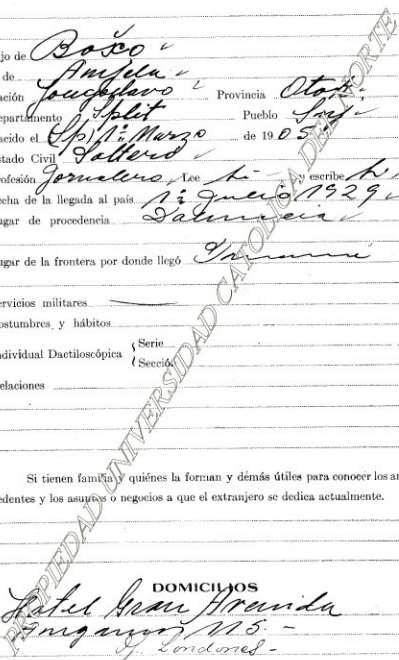 ijo de Bošco
de Anjela
ación Yougoslavo Provincia Oton
epartamento Split Pueblo Sinj
acido el 1º Marzo de 1905
stado Civil Soltero
rofesión Jornalero, Lee si y escribe si
echa de la llegada al país 1º Junio 1929
ugar de procedencia Dalmacia
ugar de la frontera por donde llegó
ervicios militares
ostumbres y hábitos
ndividual Dactiloscópica { Serie
Sección
elaciones
Si tienen familia y quiénes la forman y démás útiles para conocer los an
edentes y los asuntos o negocios a que el extranjero se dedica actualmente.
DOMICILIOS
Hotel Gran Avenida
115 -
Londones -
PROPIEDAD UNIVERSIDAD CATOLICA DEL NORTE